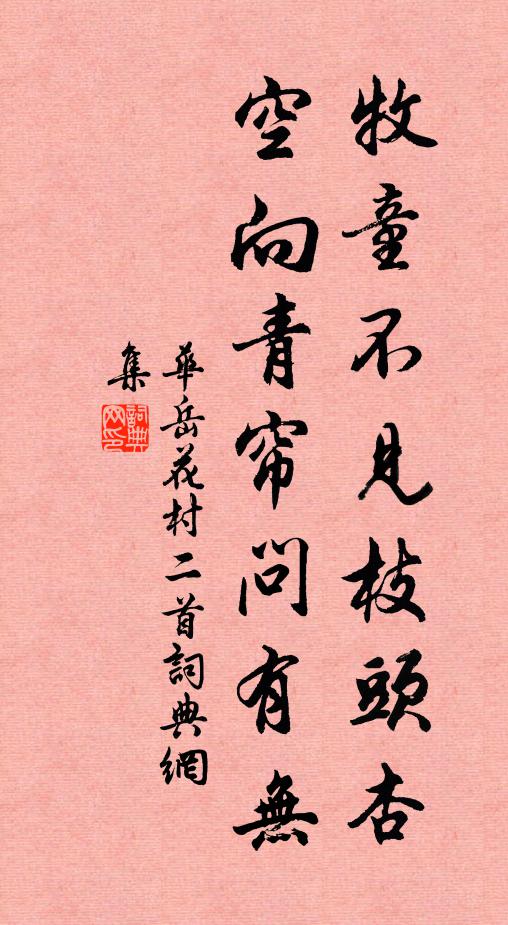 牧童不見枝頭杏
空向青帘問有無
華岳花村二首詞典網
集
詞典
网印